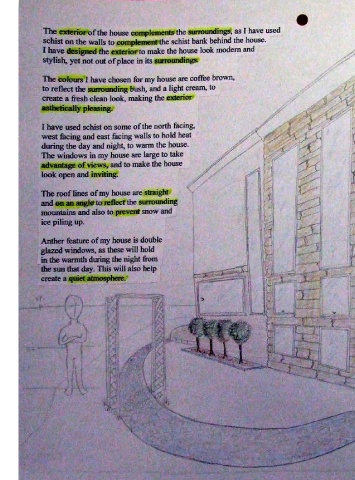 The exterior of the house complements the surroundings, as I have used
schist on the walls to complement the schist bank behind the house.
I have designed the exterior to make the house look modern and
stylish, yet not out of place in its surroundings.
The colours I have chosen for my house are coffee brown,
to reflect the surrounding bush, and a light cream, to
create a fresh clean look, making the exterior
asthetically pleasing.
I have used schist on some of the north facing,
west facing and east facing walls to hold heat
during the day and night, to warm the house.
The windows in my house are large to take
advantage of views, and to make the house
look open and inviting.
The roof lines of my house are straight
and on an angle to reflect the surrounding
mountains and also to prevent snow and
ice piling up.
Anther feature of my house is double
glazed windows, as these will hold
in the warmth during the night from
the sun that day. This will also help
create a quiet atmosphere.